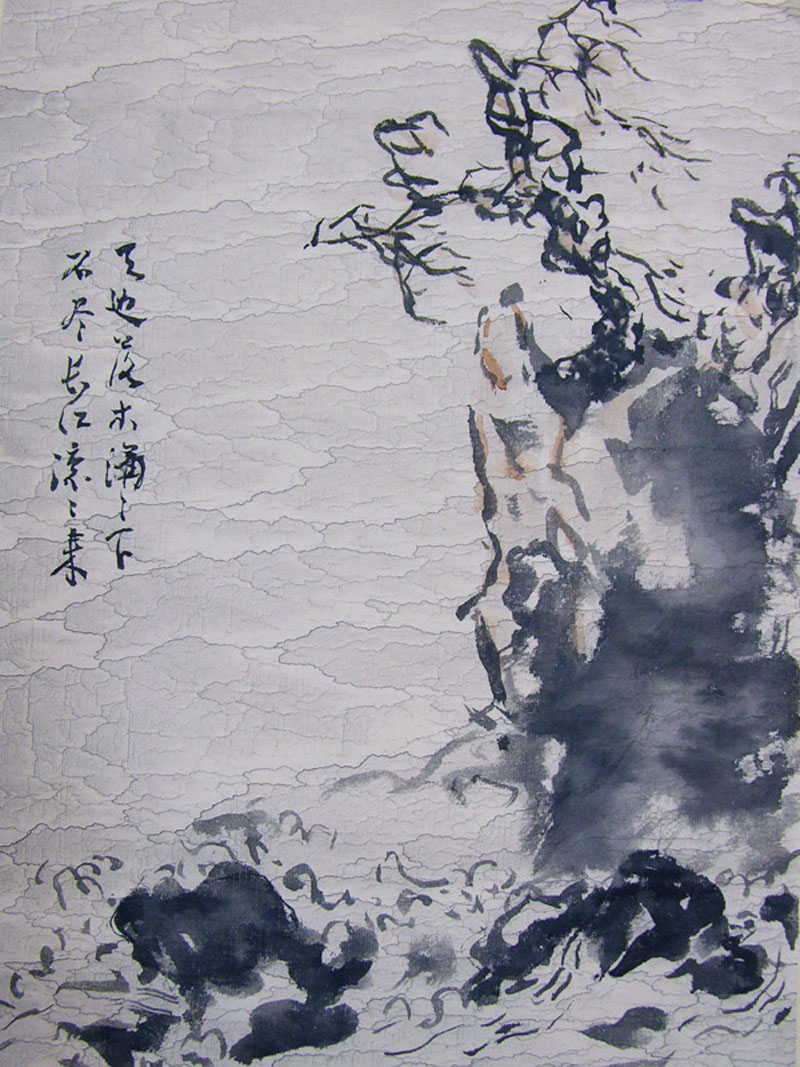 无边落木潇〻下
不尽长江滚〻来